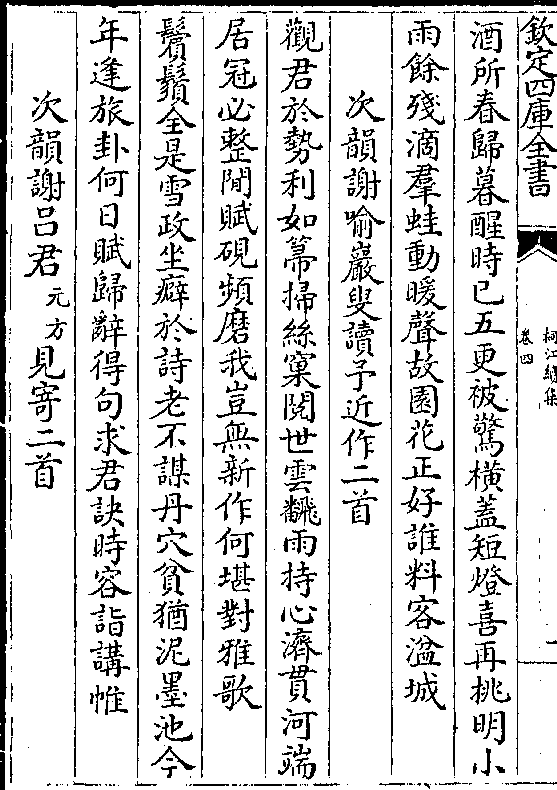 欽定四庫全書
桐江續集
卷四
酒所春歸暮醒時已五更被驚橫蓋短燈喜再挑明小
雨餘殘滴羣蛙動暖聲故園花正好誰料客湓城
次韻謝喻巖叟讀予近作二首
觀君於勢利如箒掃絲窠閱世雲飜雨持心濟貫河端
居冠必整閒賦硯頻磨我豈無新作何堪對雅歌
鬢鬚全是雪政坐癖於詩老不謀丹穴貧猶泥墨池今
年逢旅卦何日賦歸辭得句求君訣時容詣講帷
次韻謝呂君元方見寄二首